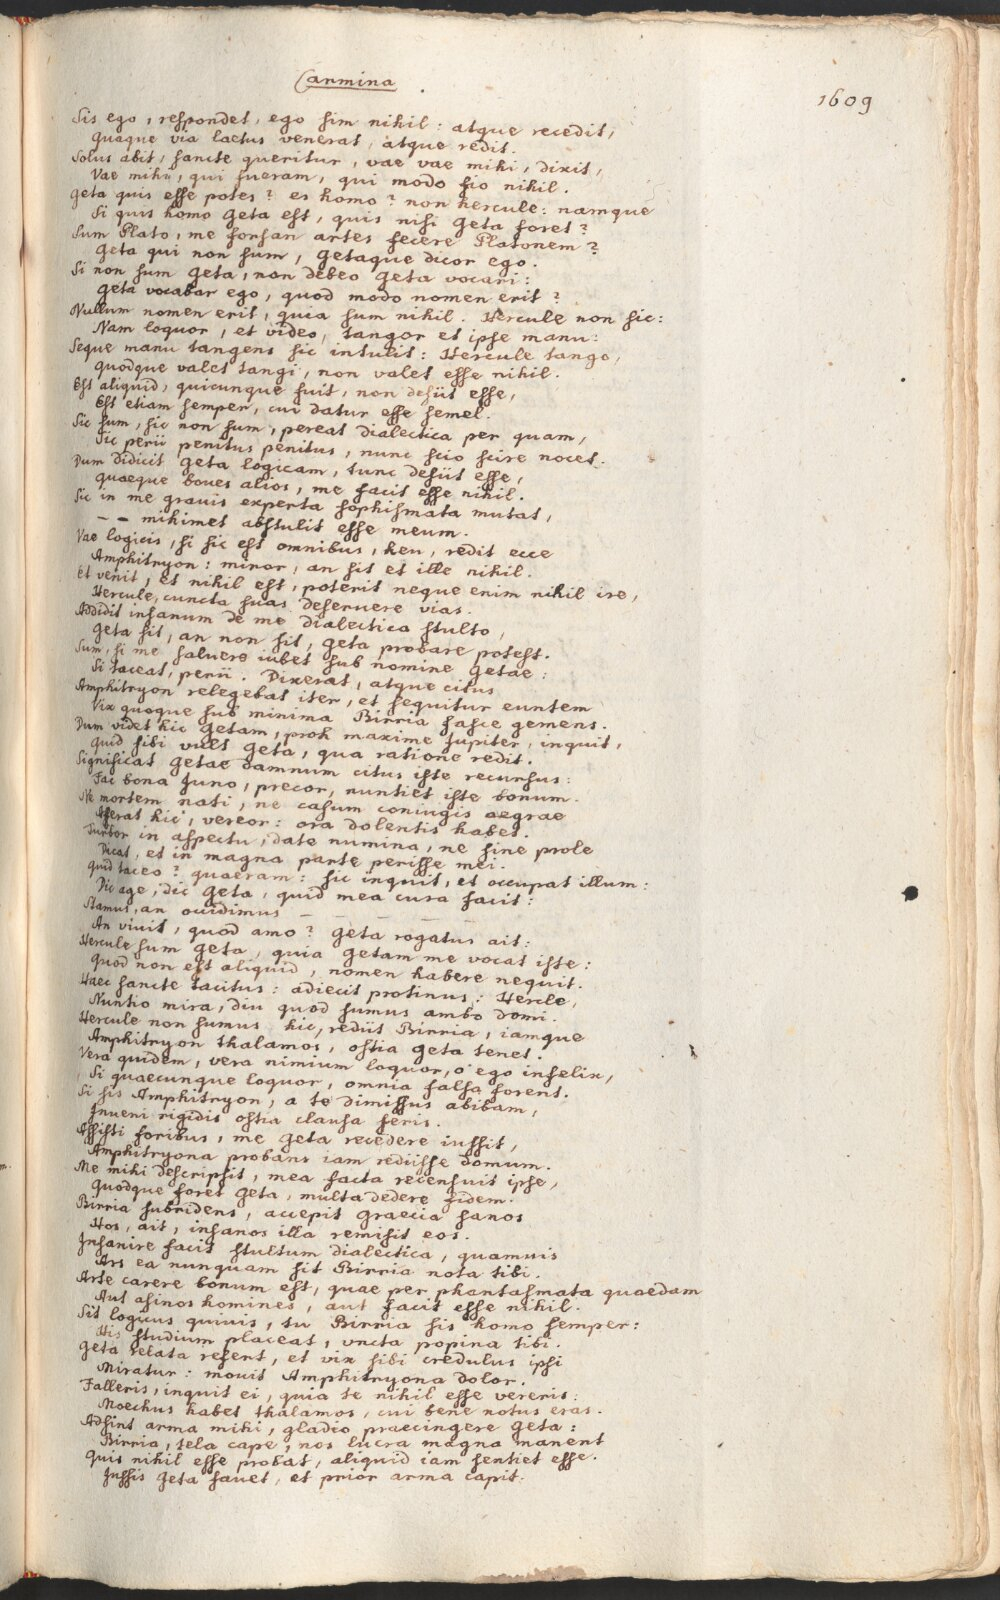 Carmina
1609
Sis ego, respondet, ego sim nihil: atque recedit,
Quaque via laetus venerat, atque redit.
Solus abit, sancte queritur, vae vae mihi, dixit,
Vae mihi, qui fueram, qui modo sio nihil.
Geta quis esse potes? es homo? non hercule: namque
Si quis homo Geta est, quis nisi Geta foret?
Sum Plato, me forsan artes fecere Platonem?
Geta qui non sum, Getaque dicor ego.
Si non sum Geta, non debeo Geta vocari:
Geta vocabar ego, quod modo nomen erit?
Nullum nomen erit, quia sum nihil. Hercule non sic:
Nam loquor, et video, tangor et ipse manu:
Seque manu tangens sic intulit: Hercule tango,
quodque valet tangi, non valet esse nihil.
Est aliquid, quicunque fuit, non desiit esse,
Est etiam semper, cui datur esse semel.
Sic sum, sic non sum, pereat dialectica per quam,
Sic perii penitus penitus, nunc scio scire nocet.
Dum didicit Geta logicam, tunc desiit esse,
Quaeque boues alios, me facit esse nihil.
Sic in me grauis experta sophismata mutat,
– – mihimet abstulit esse meum.
Vae logicis, si sic est omnibus, heu, redit ecce
Amphitryon: miror, an sit et ille nihil.
Et venit, et nihil est, poterit neque enim nihil ire,
Hercule, cuncta suas deseruere vias.
Addidit insanum de me dialectica stulto,
Geta sit, an non sit, Geta probare potest.
Sum, si me saluere iubet sub nomine Getae:
Si taceat, perii. Dixerat, atque citus
Amphitryon relegebat iter, et sequitur euntem
Vix quoque sub minima Birria fasce gemens.
Dum videt hic Getam, proh maxime Jupiter, inquit,
Quid sibi vult Geta, qua ratione redit.
Significat Getae damnum citus iste recursus:
Fac bona Juno, precor, nuntiet iste bonum.
Ne mortem nati, ne casum coniugis aegrae
Afferat hic, vereor: ora dolentis habet.
Turbor in aspectu, date numina, ne sine prole
Dicat, et in magna parte perisse mei.
Quid taceo? quaeram: sic inquit, et occupat illum:
Dic age, dic Geta, quid mea cura facit:
Stamus, an occidimus – – – – – –
An viuit, quod amo? Geta rogatus ait:
Hercule sum Geta, quia Getam me vocat iste:
Quod non est aliquid, nomen habere nequit.
Haec sancte tacitus: adiecit protinus: Hercle,
Nuntio mira, diu quod sumus ambo domi.
Hercule non sumus hic, rediit Birria, iamque
Amphitryon thalamos, ostia Geta tenet.
Vera quidem, vera nimium loquor, o ego infelix,
Si quaecunque loquor, omnia falsa forent.
Si sis Amphitryon, a te dimissus abibam,
Inueni rigidis ostia clausa seris.
Assisti foribus, me Geta recedere iussit,
Amphitryona probans iam rediisse domum.
Me mihi descripsit, mea facta recensuit ipse,
Quodque foret Geta, multa dedere fidem.
Birria subridens, accepit Graecia sanos
Hos, ait, insanos illa remisit eos.
Insanire facit stultum dialectica, quamuis
Ars ea nunquam sit Birria nota tibi.
Arte carere bonum est, quae per phantasmata quaedam
Aut asinos homines, aut facit esse nihil.
Sit logicus quiuis, tu Birria sis homo semper:
His studium placeat, vncta popina tibi.
Geta relata refert, et vix sibi credulus ipsi
Miratur: mouit Amphitryona dolor.
Falleris, inquit ei, quia te nihil esse vereris:
Moechus habet thalamos, cui bene notus eras.
Adsint arma mihi, gladio praecingere Geta:
Birria, tela cape, nos lucra magna manent
Quis nihil esse probat, aliquid iam sentiet esse.
Jussis Geta fauet, et prior arma capit.